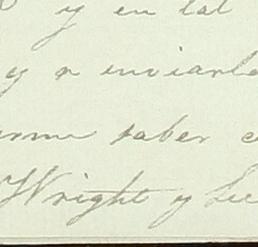 y en tal
y a enviarle
erme saber
Wright y